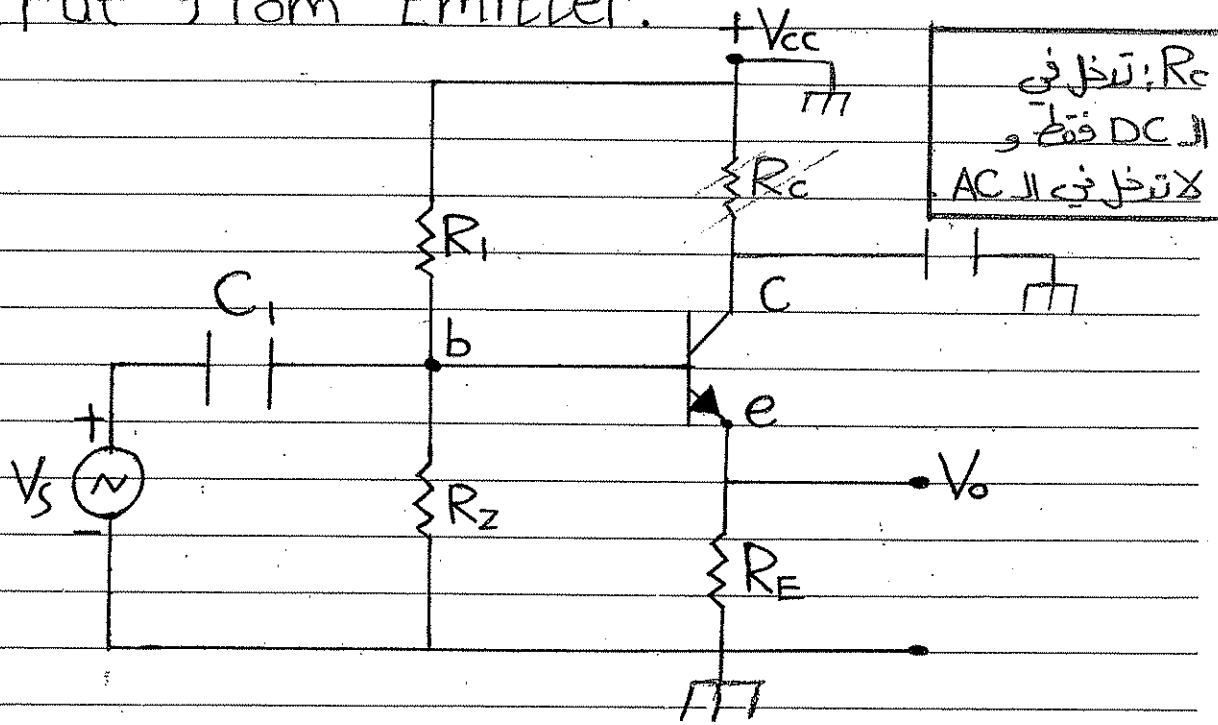 put from Emitter.
+ Vcc
Rc: تدخل في
الـ DC فقط و
لا تدخل في الـ AC.
Rc
R1
C1
C
b
e
+
Vs
-
R2
Vo
RE